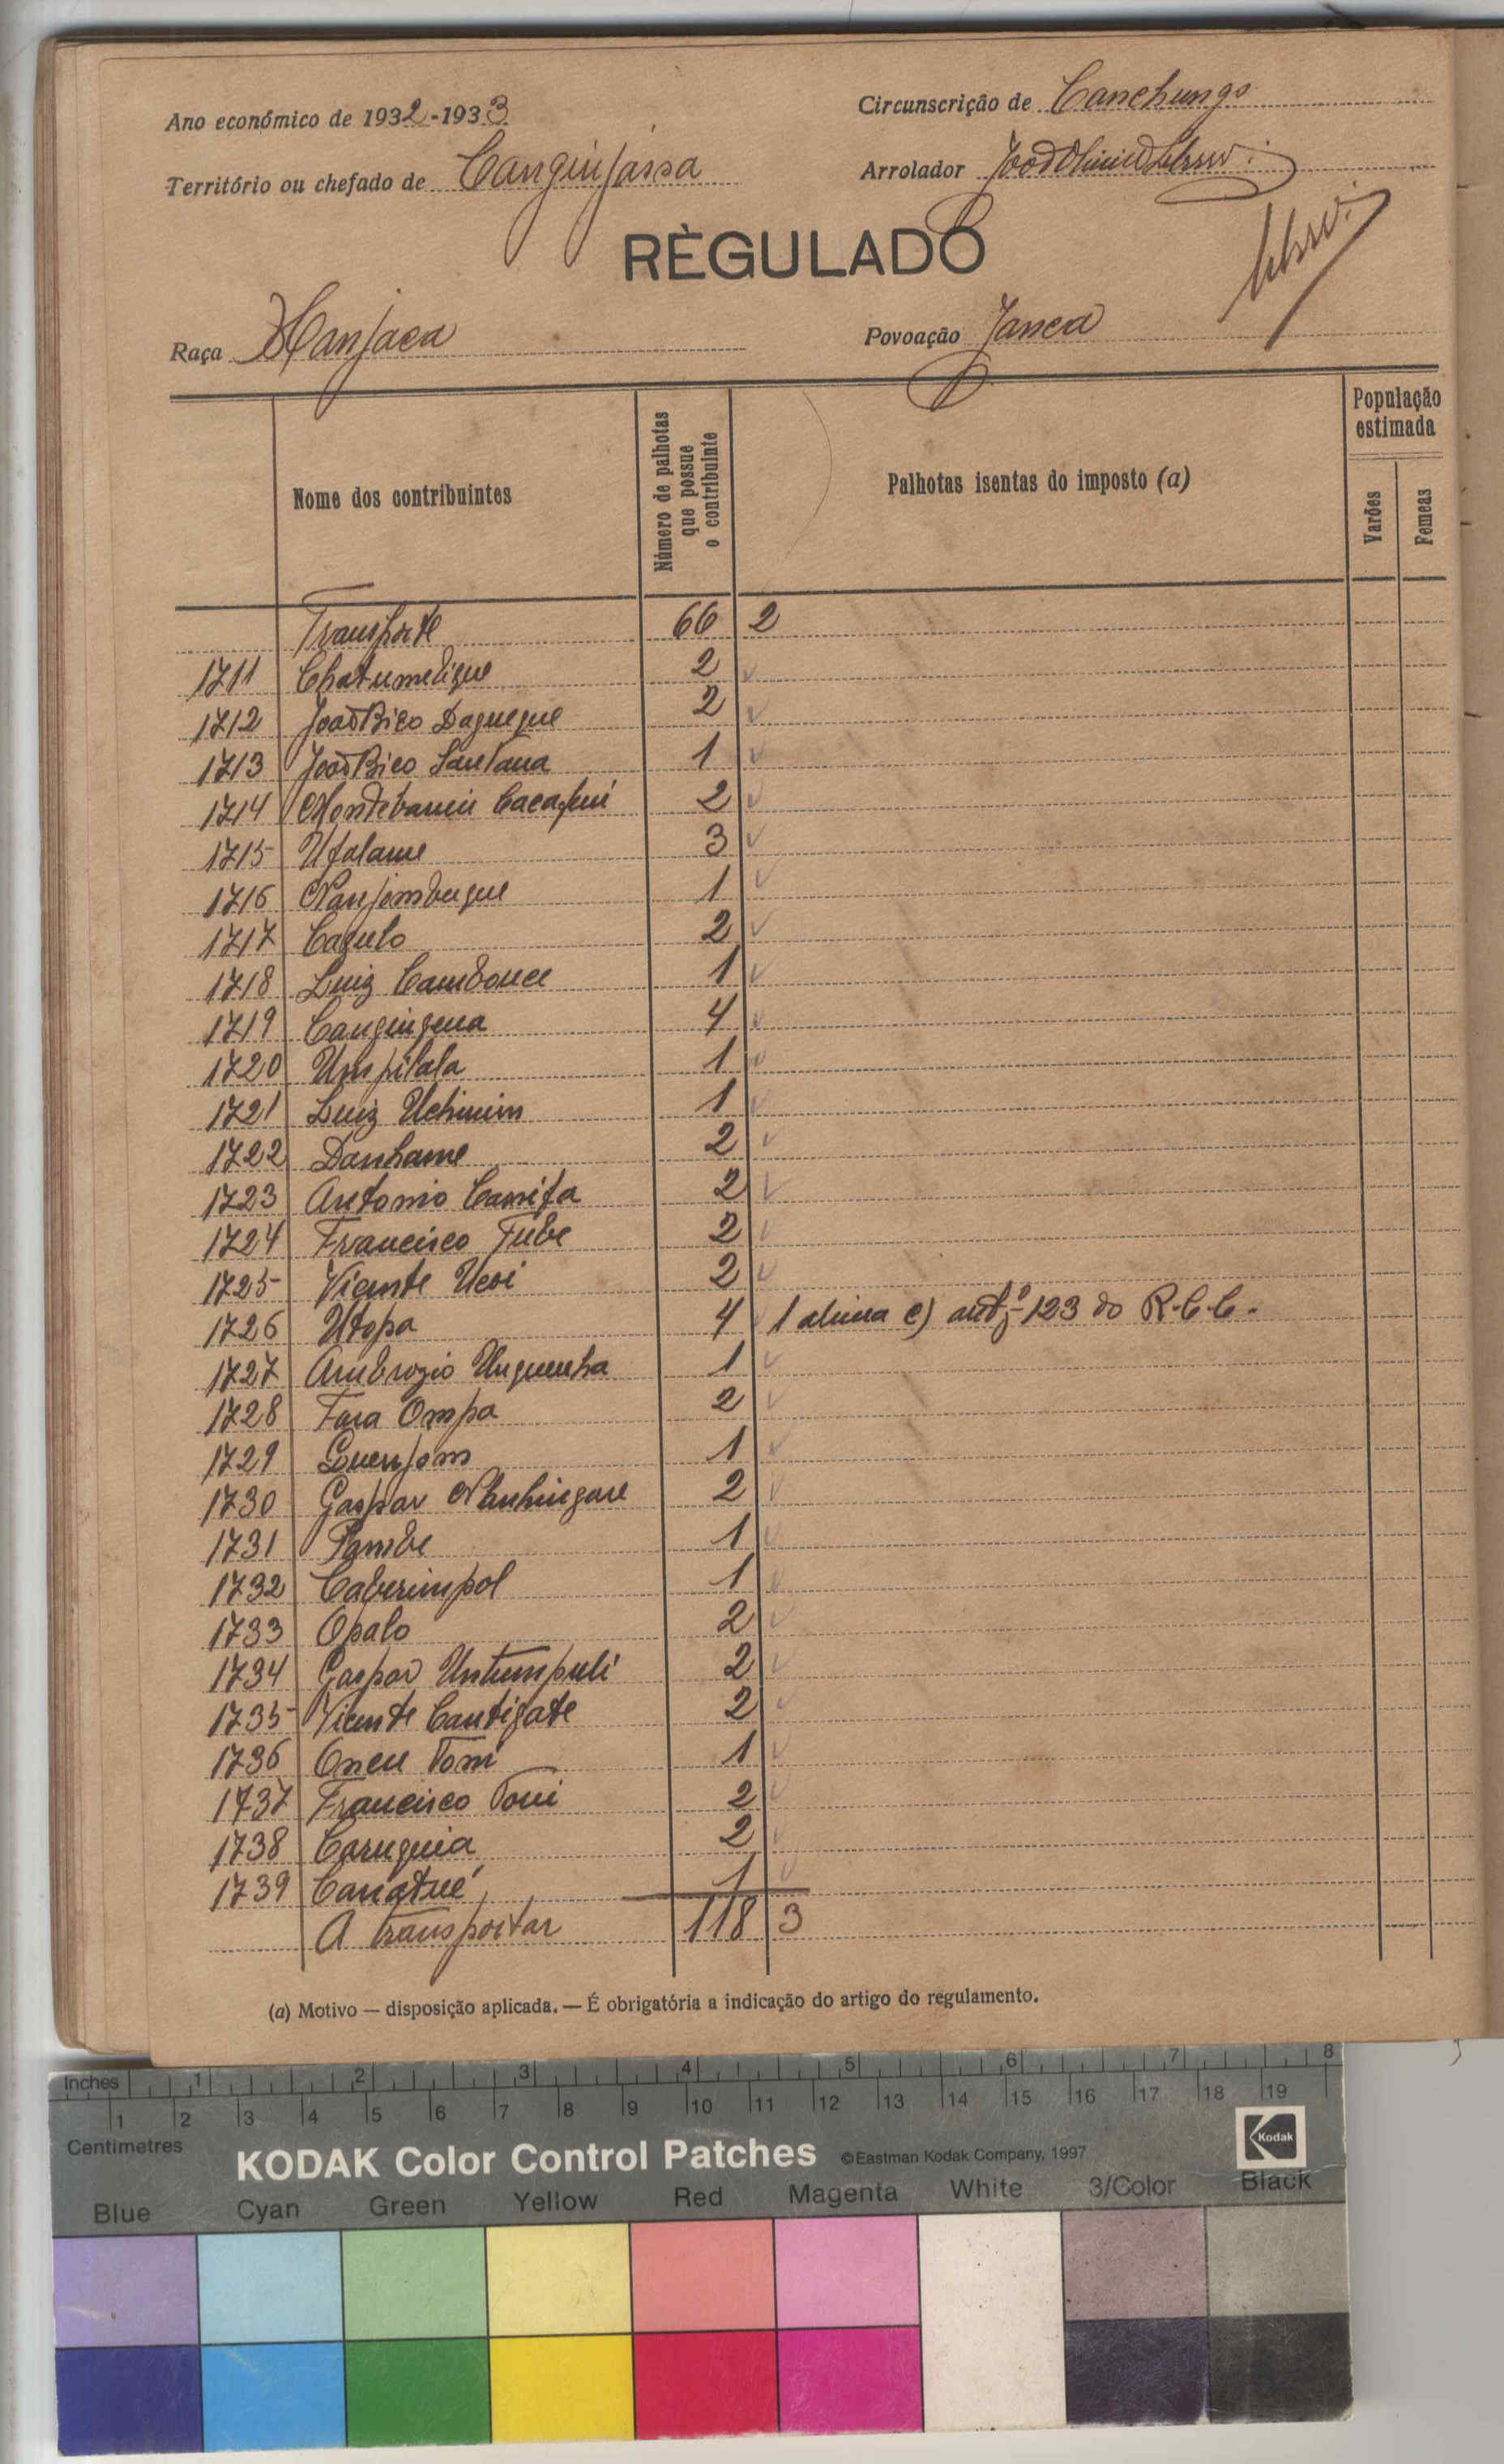 Ano económico de 1932-1933
Circunscrição de Canchungo
Território ou chefado de Canginjassa
Arrolador
RÈGULADO
Raça Manjaca
Povoação Janca
Nome dos contribuintes
Número de palhotas que possue o contribuinte
Palhotas isentas do imposto (a)
População estimada
Varões
Femeas
Transporte 66 2
1711 Chatumelique 2
1712 João Bico Dagueque 2
1713 João Bico Santana 1
1714 Cacafui 2
1715 Ufalame 3
1716 Nanjombuque 1
1717 Cagulo 2
1718 Luiz 1
1719 4
1720 Umpilala 1
1721 Luiz Uchimim 1
1722 Danhame 2
1723 Antonio Canifa 2
1724 Francisco Tube 2
1725 Vicente 2
1726 Utopa 4 1 alinea c) artº 123 do R.C.C.
1727 Ambrozio Unguenha 1
1728 Fara Ompa 2
1729 Quenjom 1
1730 Gaspar Nhanhingare 2
1731 Pambe 1
1732 Caberimpol 1
1733 Opalo 2
1734 Gaspar Untumpuli 2
1735 Vicente Cantigate 2
1736 Toni 1
1737 Francisco Toni 2
1738 Caruguia 2
1739 Canatué 1
A transportar 118 3
(a) Motivo — disposição aplicada. — É obrigatória a indicação do artigo do regulamento.
Inches 1 2 3 4 5 6 7 8
1 2 3 4 5 6 7 8 9 10 11 12 13 14 15 16 17 18 19
Centimetres
KODAK Color Control Patches ©Eastman Kodak Company, 1997 Kodak
Blue Cyan Green Yellow Red Magenta White 3/Color Black